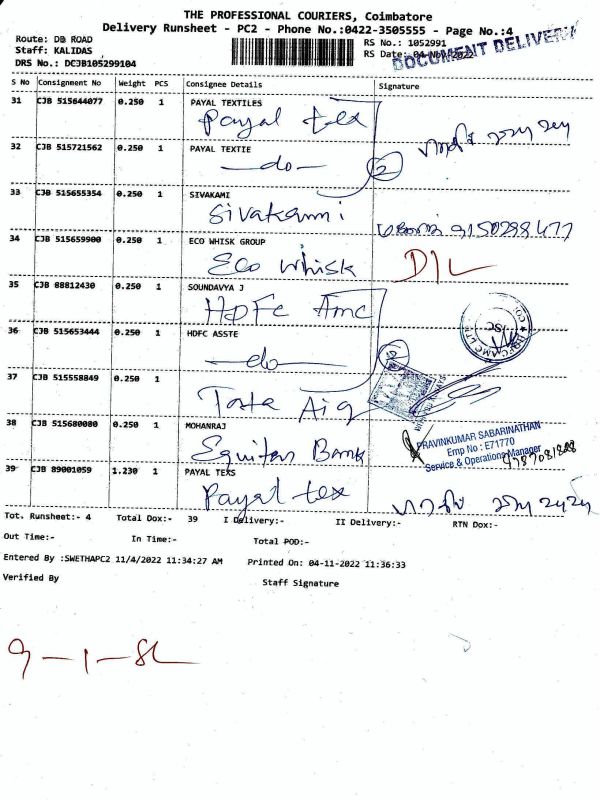 THE PROFESSIONAL COURIERS, Coimbatore
Delivery Runsheet - PC2 - Phone No.:0422-3505555 - Page No.:4
Route: DB ROAD
RS No.: 1052991
Staff: KALIDAS
RS Date: 04-Nov-2022
DOCUMENT DELIVERY
DRS No.: DCJB105299104
S No Consignment No Weight PCS Consignee Details Signature
31 CJB 515644077 0.250 1 PAYAL TEXTILES
Payal tex
32 CJB 515721562 0.250 1 PAYAL TEXTIE
-do- 2
33 CJB 515655354 0.250 1 SIVAKAMI
Sivakami
9150298477
34 CJB 515659900 0.250 1 ECO WHISK GROUP
Eco Whisk D/L
35 CJB 88812430 0.250 1 SOUNDAVYA J
HDFC Amc
36 CJB 515653444 0.250 1 HDFC ASSTE
-do-
37 CJB 515558849 0.250 1
Tata Aig
38 CJB 515680080 0.250 1 MOHANRAJ
Equitas Bank
PRAVINKUMAR SABARINATHAN
Emp No : E71770
Service & Operations Manager
39 CJB 89001059 1.230 1 PAYAL TEXS
Payal tex
Tot. Runsheet:- 4 Total Dox:- 39 I Delivery:- II Delivery:- RTN Dox:-
Out Time:- In Time:- Total POD:-
Entered By :SWETHAPC2 11/4/2022 11:34:27 AM Printed On: 04-11-2022 11:36:33
Verified By Staff Signature
9-1-8L